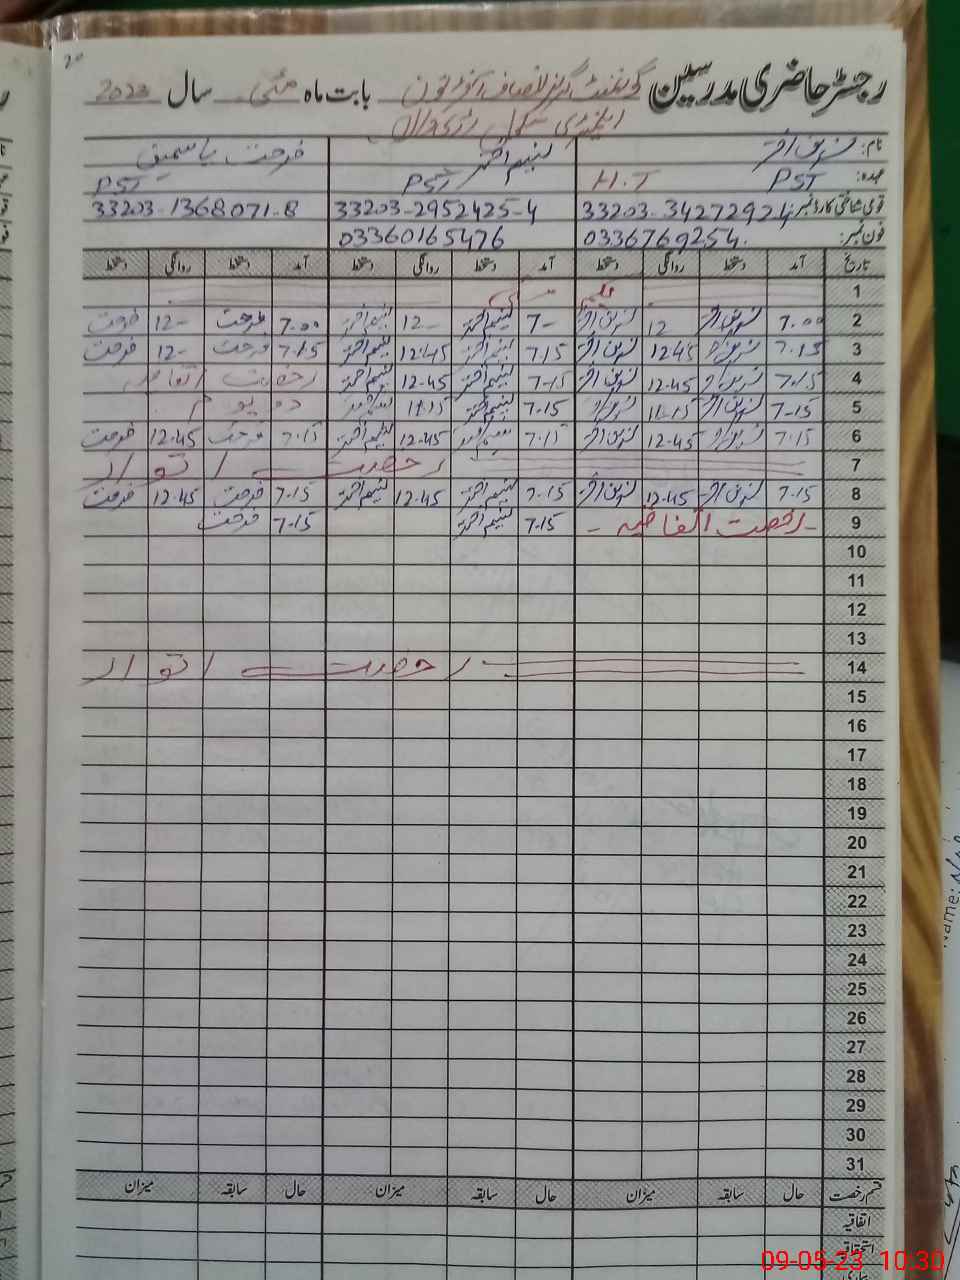 20
رجسٹر حاضری مدرسین گورنمنٹ گرلز بابت ماہ مئی سال 2023
نام: نسرین اختر نسیم اختر فرحت یاسمین
عہدہ: PST H.T PST PST
قومی شناختی کارڈ نمبر: 33203-3427292 33203-2952425-4 33203-1368071-8
فون نمبر: 0336769254 03360165476
تاریخ آمد دستخط روانگی دستخط آمد دستخط روانگی دستخط آمد دستخط روانگی دستخط
1
2 7.00 نسرین اختر 12 نسرین اختر 7- نسیم اختر 12- نسیم اختر 7.00 فرحت 12- فرحت
3 7.15 نسرین اختر 12.45 نسرین اختر 7.15 نسیم اختر 12.45 نسیم اختر 7.15 فرحت 12- فرحت
4 7-15 نسرین اختر 12-45 نسرین اختر 7-15 نسیم اختر 12-45 نسیم اختر رخصت اتفاقیہ
5 7-15 نسرین اختر 11-15 نسرین اختر 7-15 نسیم اختر 11-15 نسیم اختر
6 7.15 نسرین اختر 12-45 نسرین اختر 7.15 نسیم اختر 12-45 نسیم اختر 7.15 فرحت 12.45 فرحت
7 رخصت اتوار
8 7.15 نسرین اختر 12.45 نسرین اختر 7.15 نسیم اختر 12.45 نسیم اختر 7.15 فرحت 12.45 فرحت
9 - رخصت اتفاقیہ - 7.15 نسیم اختر 7.15 فرحت
10
11
12
13
14 رخصت اتوار
15
16
17
18
19
20
21
22
23
24
25
26
27
28
29
30
31
قسم رخصت حال سابقہ میزان حال سابقہ میزان حال سابقہ میزان
اتفاقیہ
استحقاقیہ
Name:
09-05-23 10:30